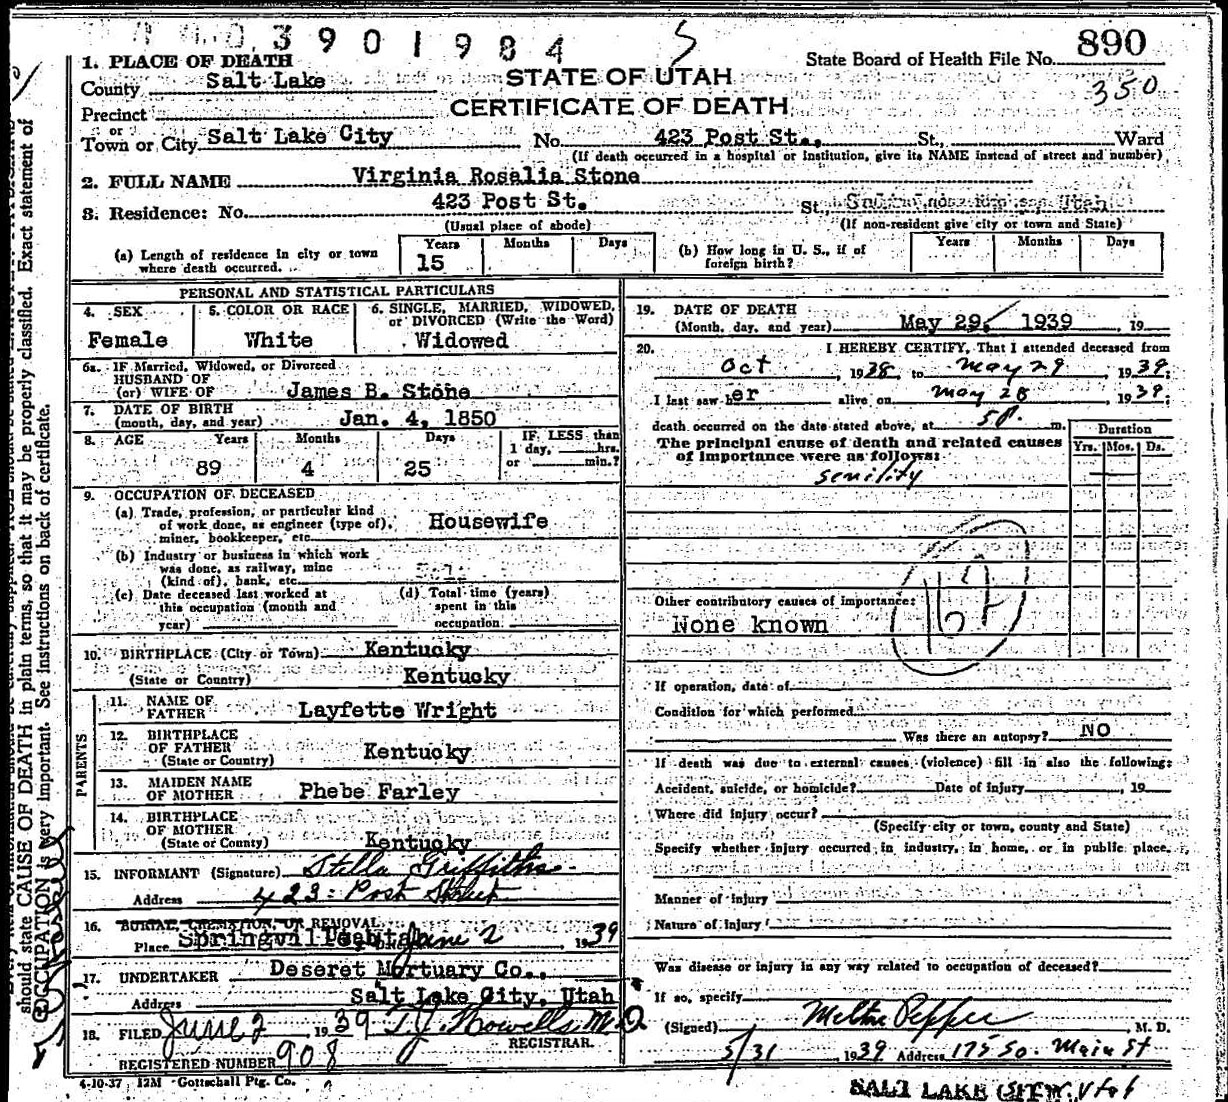 0 3 9 0 1 9 8 4 S
State Board of Health File No. 890
350
STATE OF UTAH
CERTIFICATE OF DEATH
1. PLACE OF DEATH
County Salt Lake
Precinct
or
Town or City Salt Lake City No. 423 Post St., St., Ward
(If death occurred in a hospital or institution, give its NAME instead of street and number)
2. FULL NAME Virginia Rosalia Stone
3. Residence: No. 423 Post St. St., Utah
(Usual place of abode) (If non-resident give city or town and State)
(a) Length of residence in city or town where death occurred. Years 15 Months Days
(b) How long in U. S., if of foreign birth? Years Months Days
PERSONAL AND STATISTICAL PARTICULARS
4. SEX Female
5. COLOR OR RACE White
6. SINGLE, MARRIED, WIDOWED, or DIVORCED (Write the Word) Widowed
6a. IF Married, Widowed, or Divorced
HUSBAND OF
(or) WIFE OF James B. Stone
7. DATE OF BIRTH
(month, day, and year) Jan. 4, 1850
8. AGE Years Months Days IF LESS than
1 day, hrs.
or min.?
89 4 25
9. OCCUPATION OF DECEASED
(a) Trade, profession, or particular kind
of work done, as engineer (type of),
miner, bookkeeper, etc. Housewife
(b) Industry or business in which work
was done, as railway, mine
(kind of), bank, etc.
(c) Date deceased last worked at
this occupation (month and
year)
(d) Total time (years)
spent in this
occupation
10. BIRTHPLACE (City or Town) Kentucky
(State or Country) Kentucky
PARENTS
11. NAME OF
FATHER Layfette Wright
12. BIRTHPLACE
OF FATHER
(State or Country) Kentucky
13. MAIDEN NAME
OF MOTHER Phebe Farley
14. BIRTHPLACE
OF MOTHER
(State or Country) Kentucky
15. INFORMANT (Signature) Stella Griffiths
Address 423 Post Street
16. BURIAL, CREMATION, OR REMOVAL
Place Springville Utah June 2, 1939
17. UNDERTAKER Deseret Mortuary Co.,
Address Salt Lake City, Utah
18. FILED June 2 1939 T. J. Howells M.D.
REGISTRAR.
REGISTERED NUMBER 908
4-10-37 12M Gottschall Ptg. Co.
19. DATE OF DEATH
(Month, day, and year) May 29, 1939, 19
20. I HEREBY CERTIFY, That I attended deceased from
Oct, 1938, to May 29, 1939;
I last saw her alive on May 28, 1939;
death occurred on the date stated above, at 5 P. m.
The principal cause of death and related causes
of importance were as follows:
Duration
Yrs. Mos. Ds.
senility
162
Other contributory causes of importance:
None known
If operation, date of
Condition for which performed
Was there an autopsy? NO
If death was due to external causes (violence) fill in also the following:
Accident, suicide, or homicide? Date of injury, 19
Where did injury occur?
(Specify city or town, county and State)
Specify whether injury occurred in industry, in home, or in public place.
Manner of injury
Nature of injury
Was disease or injury in any way related to occupation of deceased?
If so, specify
(Signed) Milton Pepper, M. D.
5/31, 1939 Address 175 So. Main St
SALT LAKE CITY, Utah
should state CAUSE OF DEATH in plain terms, so that it may be properly classified. Exact statement of
OCCUPATION is very important. See instructions on back of certificate.